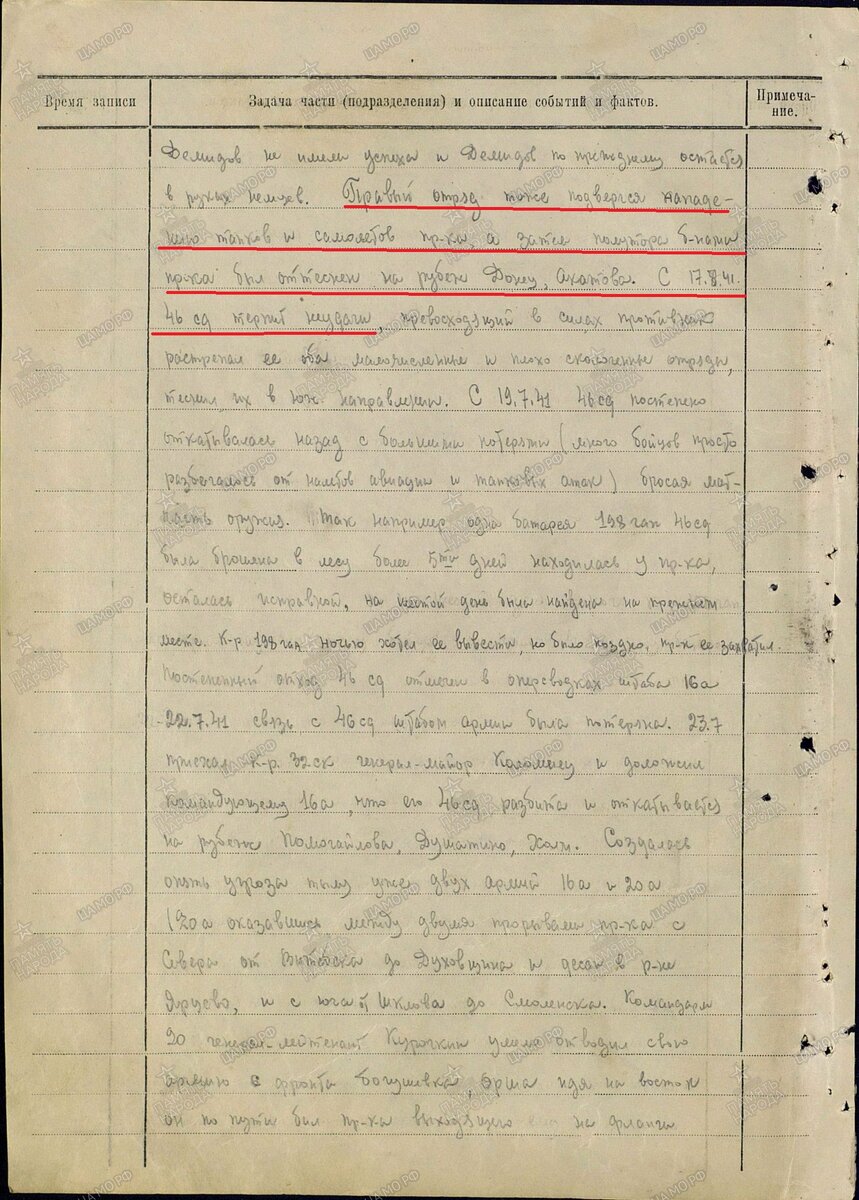 Время записи
Задача части (подразделения) и описание событий и фактов.
Примеча-
ние.
Демидов не имели успеха и Демидов по прежднему остается
в руках немцев. Правый отряд тоже подвергся нападе-
нию танков и самолетов пр-ка, а затем полутора б-нами
пр-ка был оттеснен на рубеж Донец, Ахатова. С 17.8.41.
46 сд терпит неудачи, превосходящий в силах противник
растрепал ее оба малочисленные и плохо сколоченные отряды,
теснил их в юж. направлении. С 19.7.41 46 сд постепено
откатывалась назад с большими потерями (много бойцов просто
разбегалось от налетов авиации и танковых атак) бросая мат-
часть оружия. Так например одна батарея 198 гап 46 сд
была брошена в лесу более 5ти дней находилась у пр-ка,
осталась исправной, на шестой день была найдена на прежнем
месте. К-р 198 гап ночью хотел ее вывести, но было поздно, пр-к ее захватил.
Постепенный отход 46 сд отмечен в оперсводках штаба 16а
22.7.41 связь с 46 сд штабом армии была потеряна. 23.7
приехал к-р. 32 ск генерал-майор Коломиец и доложил
командующему 16а, что его 46 сд разбита и откатывается
на рубеж Помогайлова, Душатино, Холм. Создалась
опять угроза тылу уже двух армий 16а и 20а
(20а оказавшись между двумя прорывами пр-ка с
Севера от Витебска до Духовщина и десан в р-не
Ярцево, и с юга от Шклова до Смоленска. Командарм
20 генерал-лейтенант Курочкин умело отводил свою
армию с фронта Богушевка, Орша идя на восток
он по пути бил пр-ка выходящего на фланги
ПАМЯТЬ НАРОДА
ЦАМО РФ